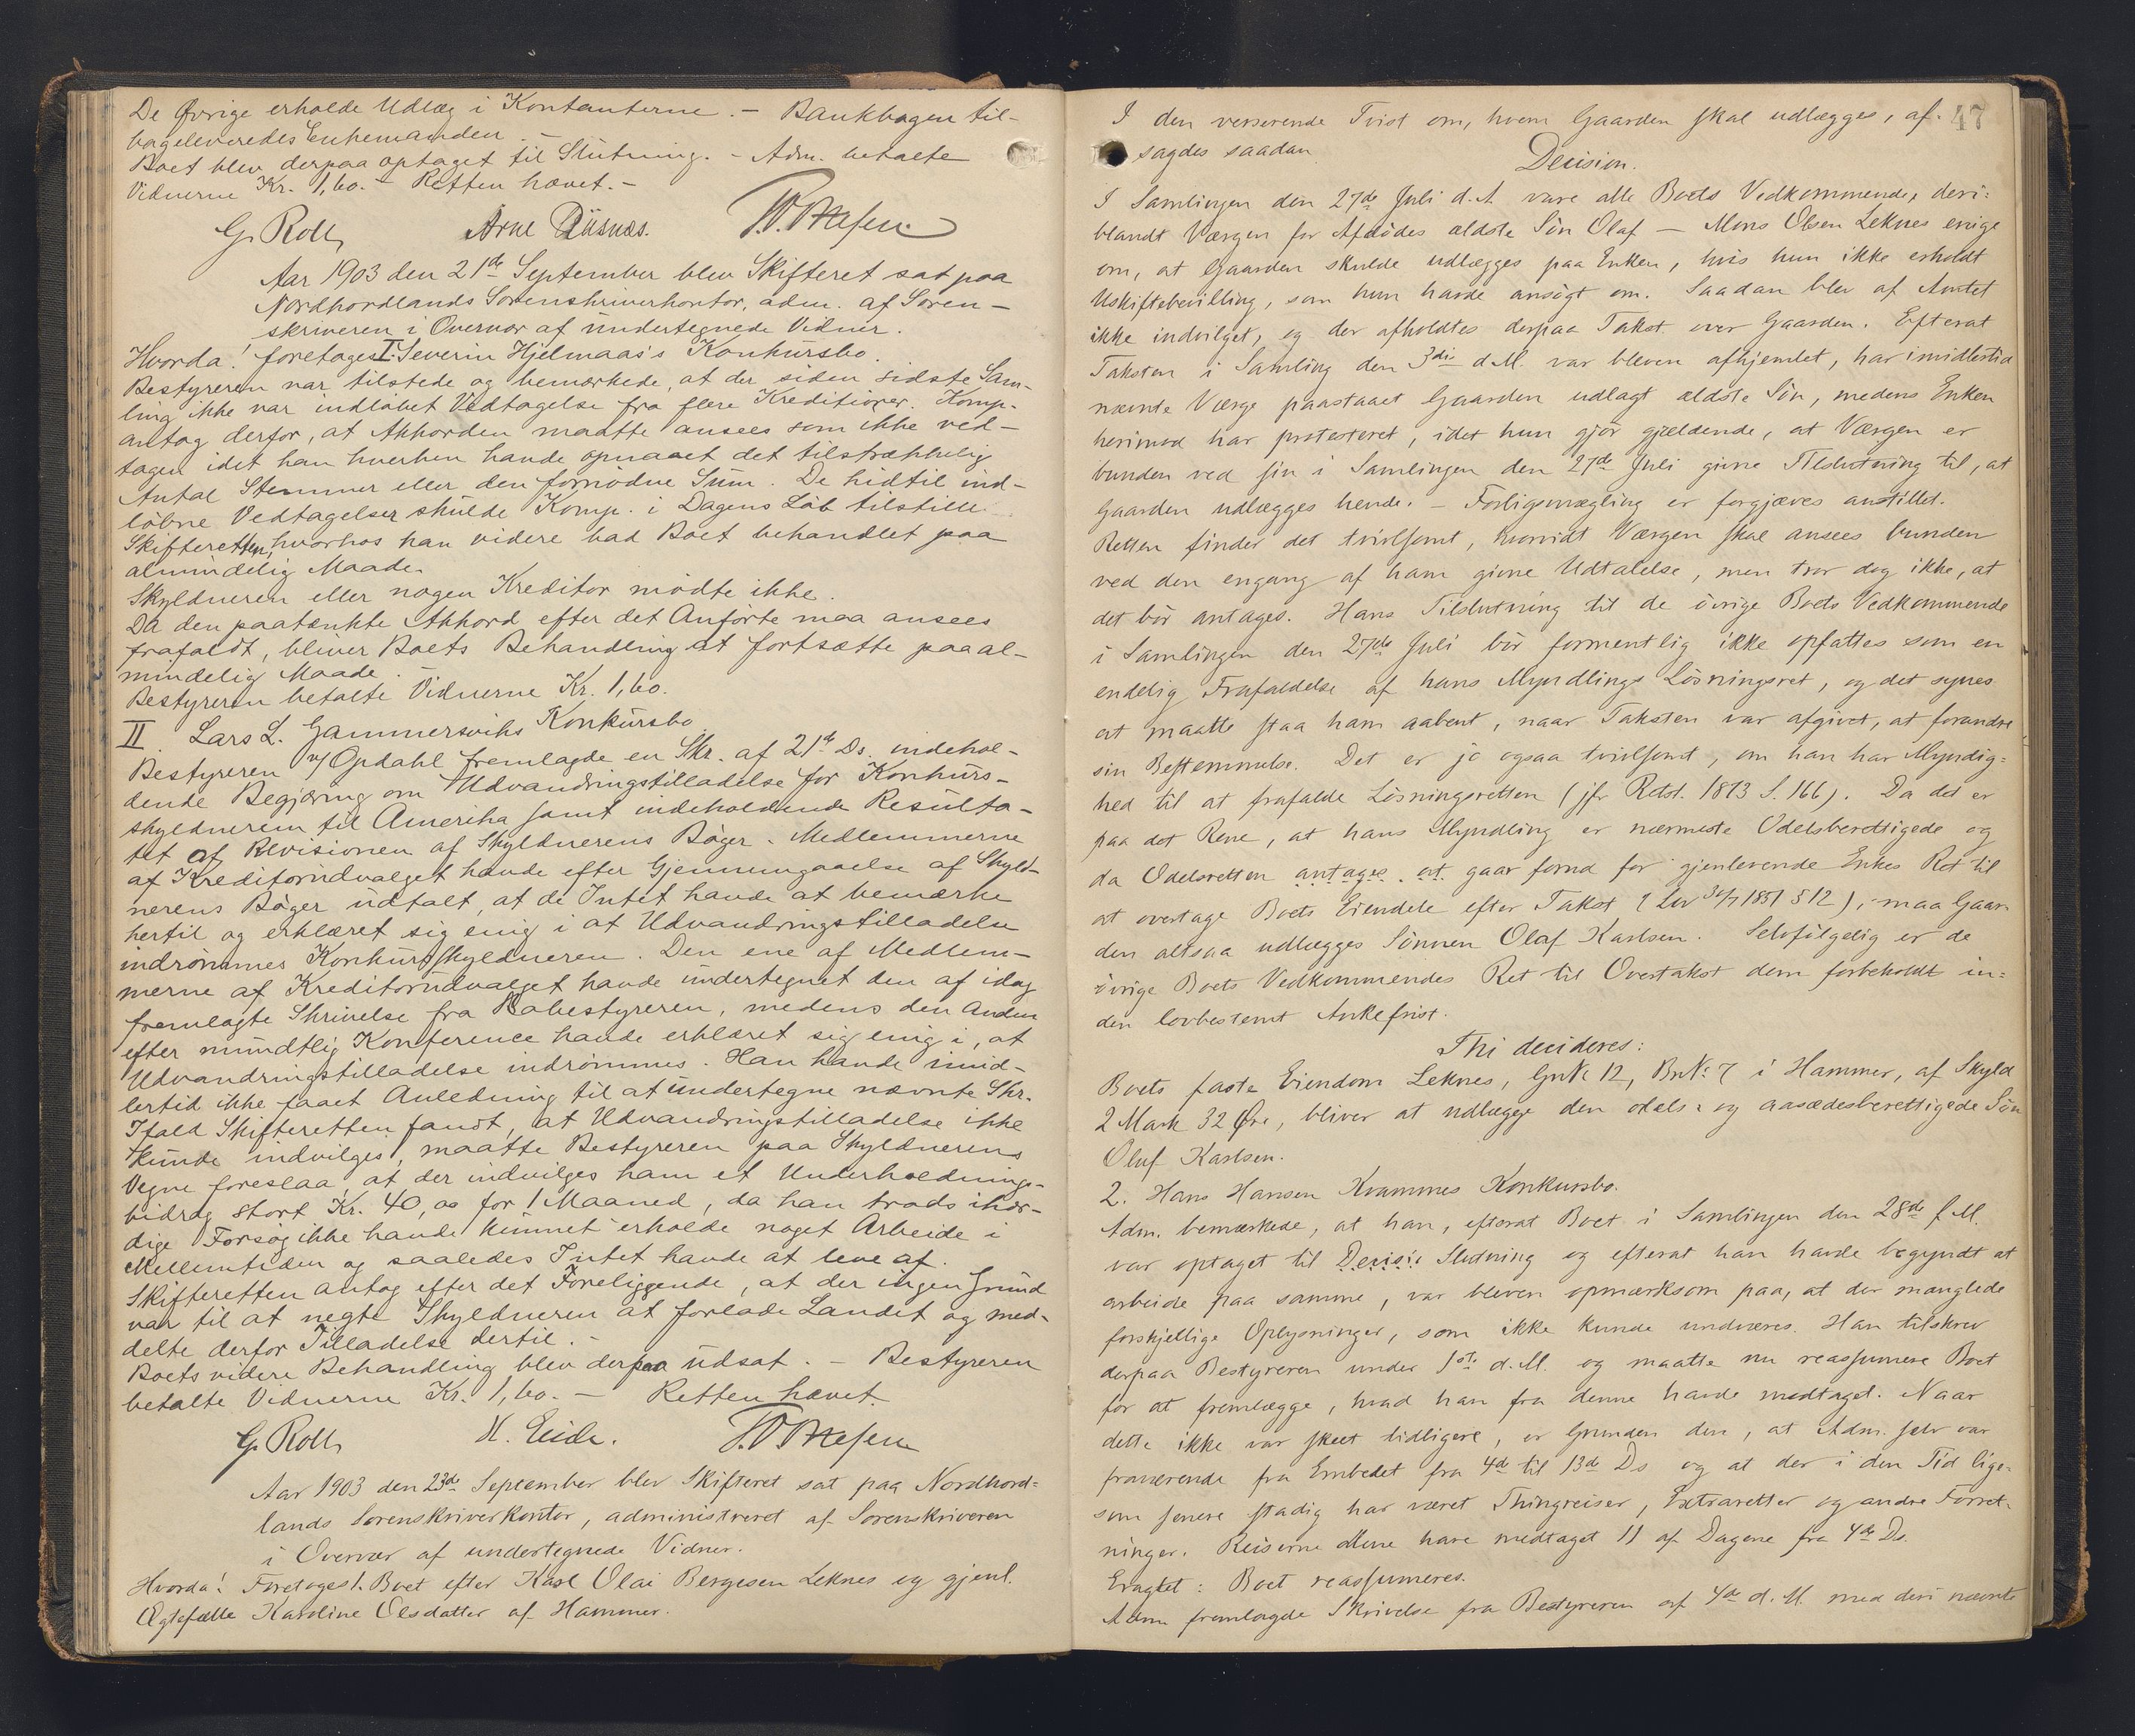 De Øvrige erholde Udlæg i Kontanterne. – Bankbogen til-
bageleveredes Enkemanden. –
Boet blev derpaa optaget til Slutning. – Adm. betalte
Vidnerne Kr. 1,60. – Retten hævet. –
G. Roll, Arne Diisnæs.
Aar 1903 den 21de September blev Skifteret sat paa
Nordhordlands Sorenskriverkontor, adm. af Soren-
skriveren i Overvær af undertegnede Vidner.
Hvorda! foretoges I. Severin Hjelmaas's Konkursbo.
Bestyreren var tilstede og bemærkede, at der siden sidste Sam-
ling ikke var indløbet Vedtagelse fra flere Kreditorer. Komp.
antog derfor, at Akkorden maatte ansees som ikke ved-
tagen idet han hverken havde opnaaet det tilstrækkelig
Antal Stemmer eller den fornødne Sum. De hidtil ind-
løbne Vedtagelser skulde Komp. i Dagens Løb tilstille
Skifteretten, hvorhos han videre bad Boet behandlet paa
almindelig Maade.
Skyldneren eller nogen Kreditor mødte ikke.
Da den paatænkte Akkord efter det Anførte maa ansees
frafaldt, bliver Boets Behandling at fortsætte paa al-
mindelig Maade.
Bestyreren betalte Vidnerne Kr. 1,60.
II. Lars L. Gammersviks Konkursbo
Bestyreren v/ Opdahl fremlagde en Skr. af 21de Ds. indehol-
dende Begjæring om Udvandringstilladelse for Konkurs-
skyldneren til Amerika samt indeholdende Resulta-
tet af Revisionen af Skyldnerens Bøger. Medlemmerne
af Kreditorudvalget havde efter Gjennemgaaelse af Skyld-
nerens Bøger udtalt, at de Intet havde at bemærke
hertil og erklæret sig enig i at Udvandringstilladelse
indrømmes Konkursskyldneren. Den ene af Medlem-
merne af Kreditorudvalget havde undertegnet den af idag
fremlagte Skrivelse fra Bobestyreren, medens den Anden
efter mundtlig Konference havde erklæret sig enig i, at
Udvandringstilladelse indrømmes. Han havde imid-
lertid ikke faaet Anledning til at undertegne nævnte Skr.
Ifald Skifteretten fandt, at Udvandringstilladelse ikke
kunde indvilges, maatte Bestyreren paa Skyldnerens
Vegne foreslaa, at der indvilges ham et Underholdnings-
bidrag stort Kr. 40,00 for 1 Maaned, da han trods ihær-
dige Forsøg ikke havde kunnet erholde noget Arbeide i
Mellemtiden og saaledes Intet havde at leve af.
Skifteretten antog efter det Foreliggende, at der ingen Grund
var til at negte Skyldneren at forlade Landet og med-
delte derfor Tilladelse dertil. –
Boets videre Behandling blev derpaa udsat. – Bestyreren
betalte Vidnerne Kr. 1,60. – Retten hævet.
G. Roll, H. Eide.
Aar 1903 den 23de September blev Skifteret sat paa Nordhord=
lands Sorenskriverkontor, administreret af Sorenskriveren
i Overvær af undertegnede Vidner.
Hvorda! Foretoges 1. Boet efter Karl Olai Bergesen Leknes og gjenl.
Ægtefælle Karoline Olsdatter af Hammer.
47
I den verserende Tvist om, hvem Gaarden skal udlægges, af-
sagdes saadan
Decision.
I Samlingen den 27de Juli d.A. vare alle Boets Vedkommende, deri=
blandt Værgen for Afdødes ældste Søn Olaf – Mons Olsen Leknes enige
om, at Gaarden skulde udlægges paa Enken, hvis hun ikke erholdt
Uskiftebevilling, som hun havde ansøgt om. Saadan blev af Amtet
ikke indvilget, og der afholdtes derpaa Takst over Gaarden. Efterat
Taksten i Samling den 3die d.M. var bleven afhjemlet, har imidlertid
nævnte Værge paastaaet Gaarden udlagt ældste Søn, medens Enken
herimod har protesteret, idet hun gjør gjældende, at Værgen er
bunden ved sin i Samlingen den 27de Juli givne Tilslutning til, at
Gaarden udlægges hende. – Forligsmægling er forgjæves anstillet.
Retten finder det tvivlsomt, hvorvidt Værgen skal ansees bunden
ved den engang af ham givne Udtalelse, men tror dog ikke, at
det bør antages. Hans Tilslutning til de øvrige Boets Vedkommende
i Samlingen den 27de Juli bør formentlig ikke opfattes som en
endelig Frafaldelse af hans Myndlings Løsningsret, og det synes
at maatte staa ham aabent, naar Taksten var afgivet, at forandre
sin Bestemmelse. Det er jo ogsaa tvivlsomt, om han har Myndig=
hed til at frafalde Løsningsretten (jfr Retst. 1873 S. 166). Da det er
paa det Rene, at hans Myndling er nærmeste Odelsberettigede og
da Odelsretten antages at gaar forud for gjenlevende Enkes Ret til
at overtage Boets Eiendele efter Takst (Lov 30/7 1851 § 12), maa Gaar-
den altsaa udlægges Sønnen Olaf Karlsen. Selvfølgelig er de
øvrige Boets Vedkommendes Ret til Overtakst dem forbeholdt in=
den lovbestemt Ankefrist.
Thi decideres:
Boets faste Eiendom Leknes, GnN: 12, BnN: 7 i Hammer, af Skyld
2 Mark 32 Øre, bliver at udlægge den odels- og aasædesberettigede Søn
Oluf Karlsen.
2. Hans Hansen Kvammes Konkursbo.
Adm. bemærkede, at han, efterat Boet i Samlingen den 28de f.M.
var optaget til Decisi: Slutning og efterat han havde begyndt at
arbeide paa samme, var bleven opmærksom paa, at der manglede
forskjellige Oplysninger, som ikke kunde undværes. Han tilskrev
derpaa Bestyreren under 1ste d.M. og maatte nu reassumere Boet
for at fremlægge, hvad han fra denne havde modtaget. Naar
dette ikke var skeet tidligere, er Grunden den, at Adm. selv var
fraværende fra Embedet fra 4de til 13de Ds og at der i den Tid lige-
som senere stadig har været Thingreiser, Extraretter og andre Forret-
ninger. Reiserne alene have medtaget 11 af Dagene fra 4de Ds.
Eragtet: Boet reassumeres.
Adm fremlagde Skrivelse fra Bestyreren af 4de d.M. med deri nævnte